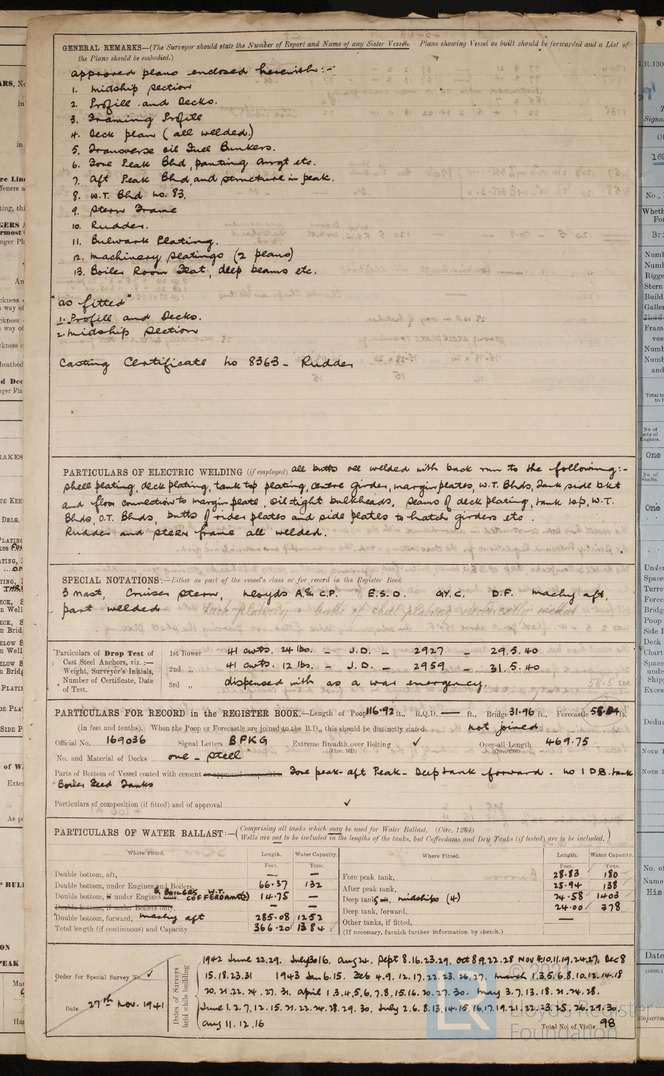 GENERAL REMARKS—(The Surveyor should state the Number of Report and Name of any Sister Vessels. Plans showing Vessel as built should be forwarded and a List of
the Plans should be embodied.)
Approved plans enclosed herewith:-
1. Midship Section
2. Profile and Decks.
3. Framing Profile
4. Deck plan (all welded.)
5. Transverse oil Fuel Bunkers.
6. Fore Peak Bhd, panting Arrgt etc.
7. Aft Peak Bhd, and structure in peak.
8. W.T. Bhd no. 83.
9. Stern Frame
10. Rudder.
11. Bulwark Plating.
12. Machinery seatings (2 plans)
13. Boiler Room Flat, deep beams etc.
"As fitted"
1. Profile and Decks.
2. Midship Section
Casting Certificate No 8363 - Rudder
PARTICULARS OF ELECTRIC WELDING (if employed) all butts all welded with back run to the following:-
Shell plating, deck plating, tank top plating, centre girder, margin plates, W.T. Bhds, Tank side bkt
and floor connection to margin plate, oil tight bulkheads, seams of deck plating, tank top, W.T.
Bhds, O.T. Bhds, butts of rider plates and side plates to hatch girders etc.
Rudder and stern frame all welded.
SPECIAL NOTATIONS.—Either as part of the vessel's class or for record in the Register Book
3 mast, Cruiser stern, Lloyds A & C.P. E.S.D. GY.C. D.F. machy aft,
part welded
Particulars of Drop Test of 1st Bower 41 cwts. 24 lbs. - J.D. - 2927 - 29.5.40
Cast Steel Anchors, viz.:—
Weight, Surveyor's Initials, 2nd „ 41 cwts. 12 lbs. - J.D. - 2959 - 31.5.40
Number of Certificate, Date
of Test. 3rd „ dispensed with as a war emergency.
PARTICULARS FOR RECORD in the REGISTER BOOK.—Length of Poop 116.92 ft., R.Q.D. — ft., Bridge 31.96 ft., Forecastle ft.
(in feet and tenths). (When the Poop or Forecastle are joined to the B.D., this should be distinctly stated) not joined
Official No. 169036 Signal Letters BFKG Extreme Breadth over Belting ✓ Over-all Length 469.75
No. and Material of Decks one - steel
Parts of Bottom of Vessel coated with cement Fore peak - aft Peak - Deep tank forward - no 1 D.B. tank
Boiler Feed Tanks
Particulars of composition (if fitted) and of approval ✓
PARTICULARS OF WATER BALLAST:—(Comprising all tanks which may be used for Water Ballast. (Circ. 1284)
Wells are not to be included in the lengths of the tanks, but Cofferdams and Dry Tanks (if tested) are to be included.)
Where Fitted. Length. Water Capacity. Where Fitted. Length. Water Capacity.
Feet. Tons. Feet. Tons.
Double bottom, aft, — — Fore peak tank, 28.83 180
Double bottom, under Engines and Boilers, 66.37 132 After peak tank, 25.94 138
Double bottom, if under Engines only, & BOILERS W.T. COFFERDAM(S) 14.75 — Deep tank, midships (4) 24.58 1403
Double bottom, if under Boilers only, Deep tank, forward, 24.00 378
Double bottom, forward, machy aft 285.08 1252 Other tanks, if fitted, —
Total length (if continuous) and Capacity 366.20 1384 (If necessary, furnish further information by sketch.)
Order for Special Survey No. ✓
Date 27th Nov. 1941
Dates of Surveys held while building
1942 June 22.29. July 30 16. Aug 24. Sept 8.16.23.29. Oct 8.9.22.28 Nov 4.10.11.19.24.27. Dec 8
15.18.23.31 1943 Jan 6.15. Feb 4.9.12.17.22.23.26.27. March 1.3.5.6.8.10.12.14.18
20.21.22.24.27.31. April 1.3.4.5.6.7.8.15.16.20.27.30. May 3.7.13.18.21.24.28.
June 1.2.7.12.15.21.22.24.28.29.30. July 2.6.8.13.14.15.16.17.19.21.22.23.25.26.29.30.
Aug 11.12.16
Total No. of Visits 98
© 2021
LR
Lloyd's Register
Foundation